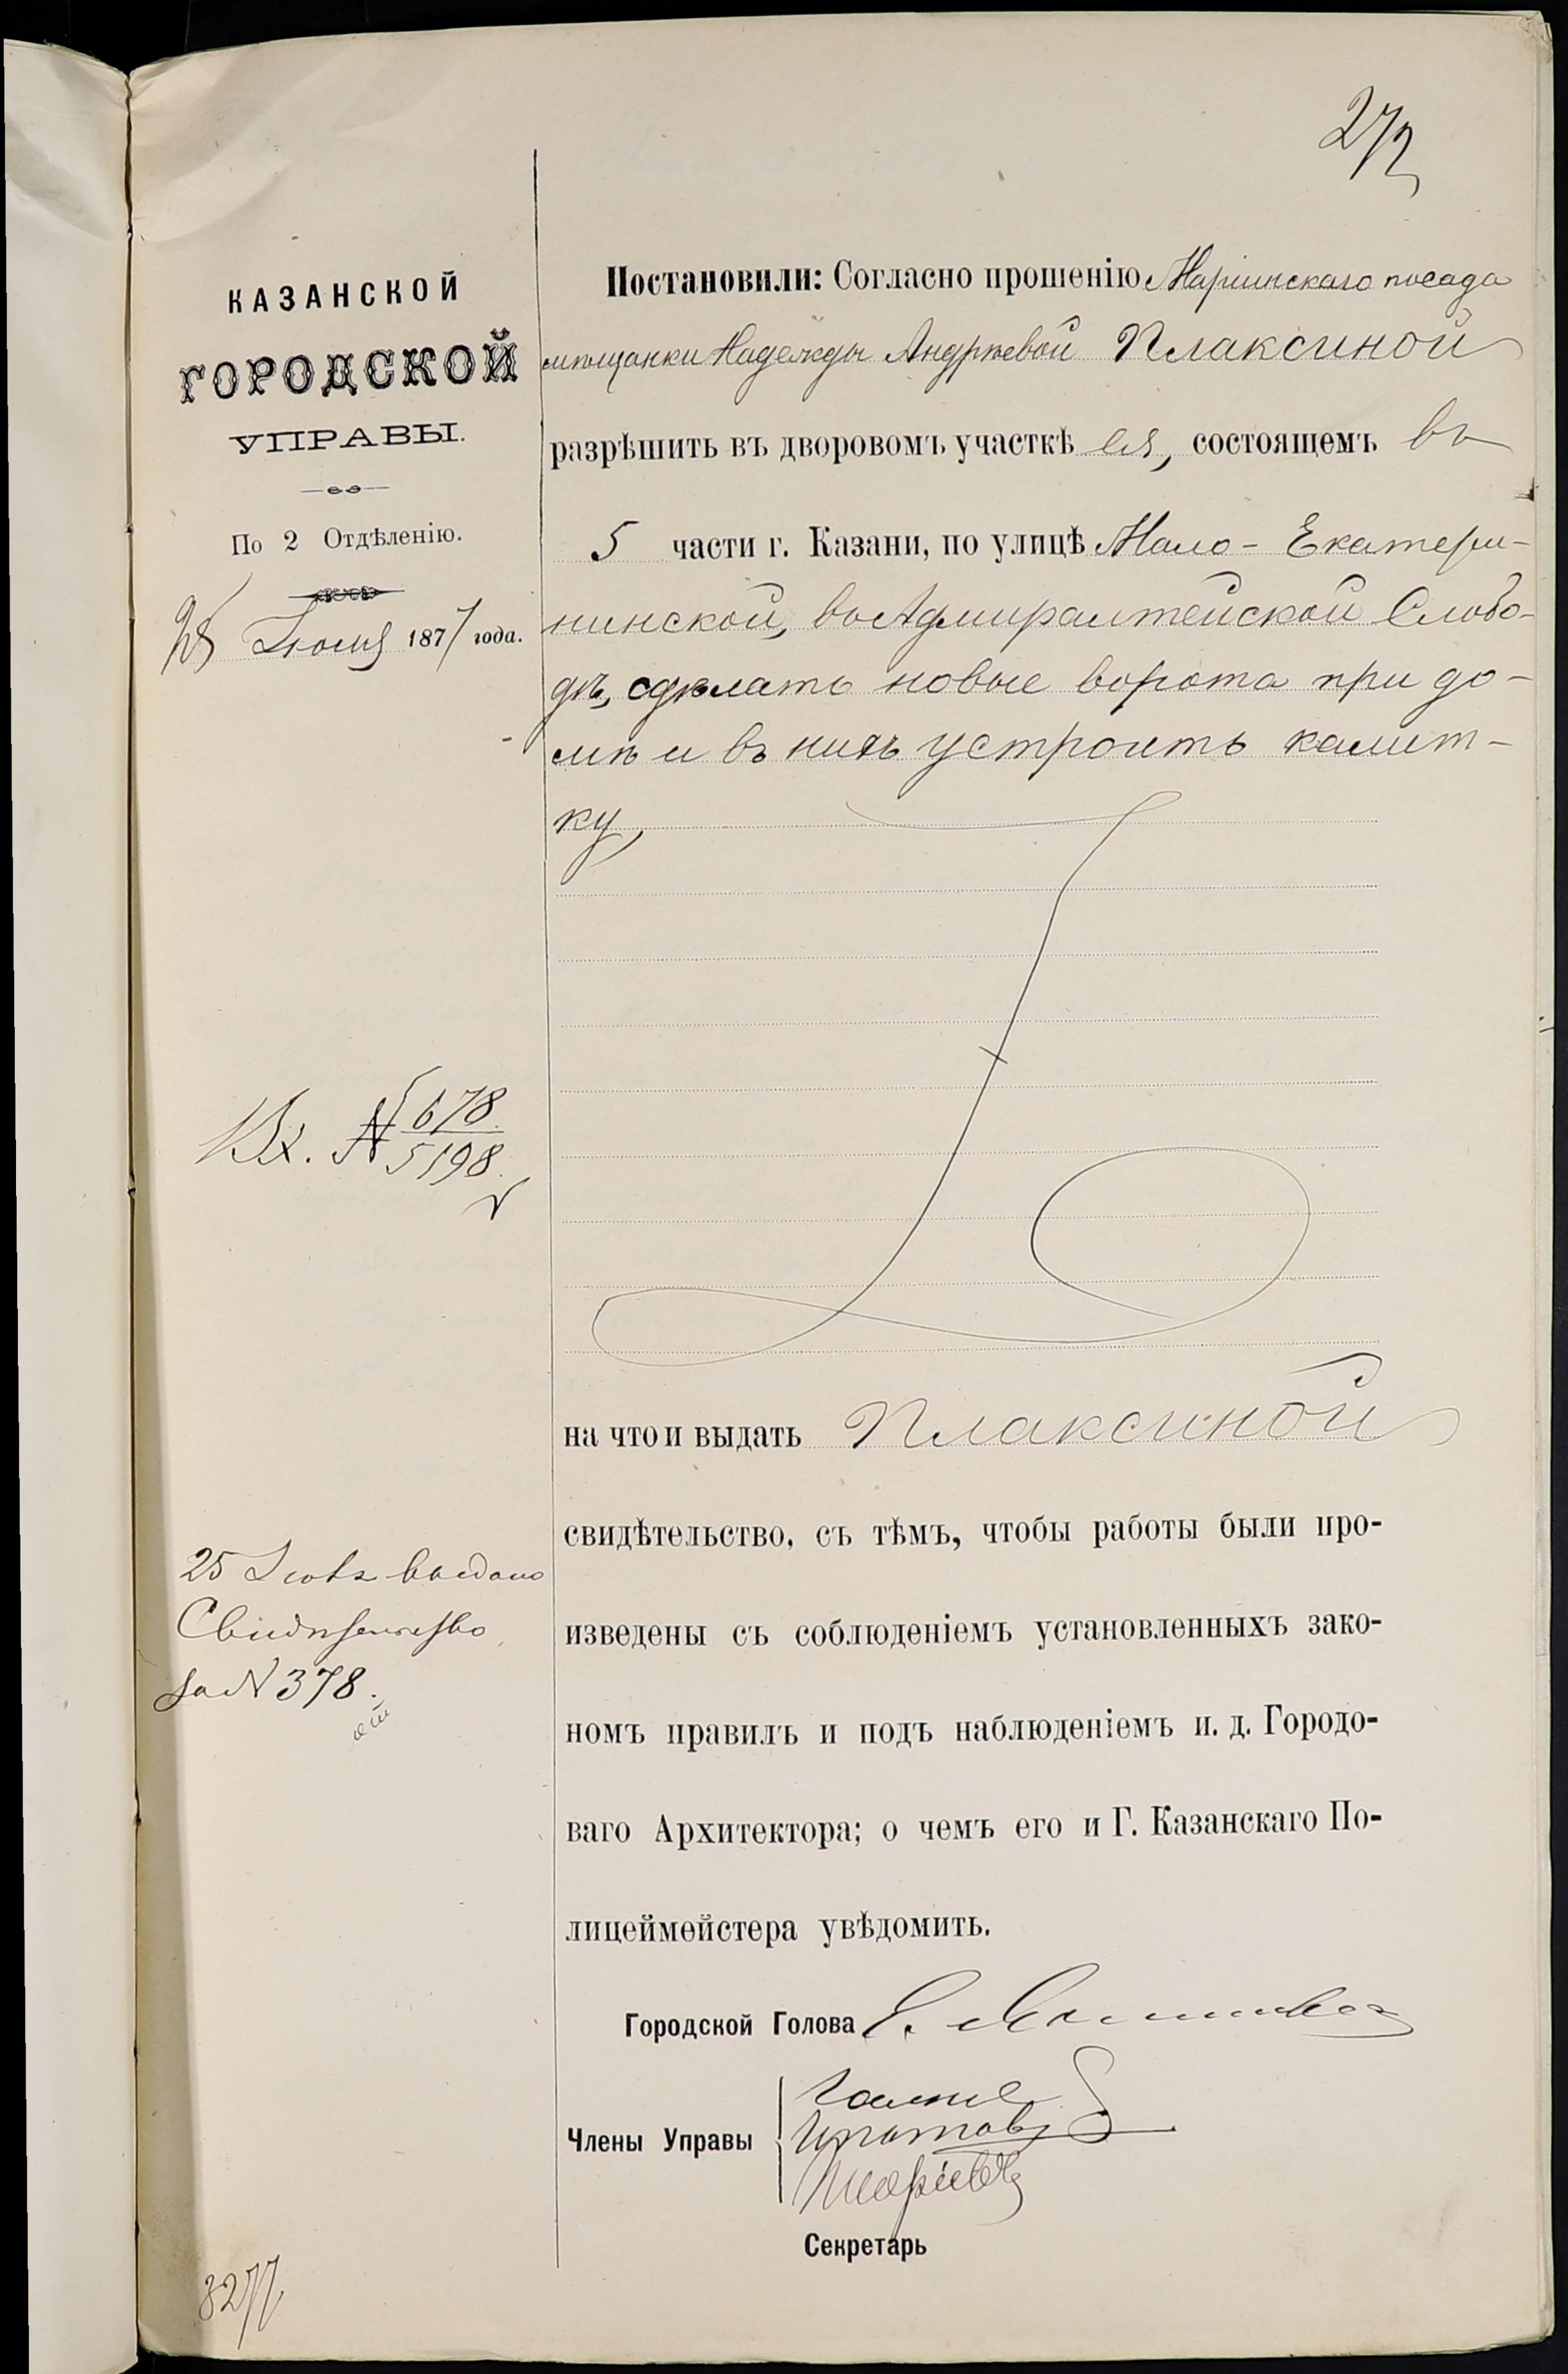 272
КАЗАНСКОЙ
ГОРОДСКОЙ
УПРАВЫ.
По 2 Отдѣленію.
Іюля 1877 года.
Вх. № 5678
5198
25 выдано
Свидѣтельство
за № 378.
3277
Постановили: Согласно прошенію Маріинскаго посада
мѣщанки Надежды Андрѣевой Плаксиной
разрѣшить въ дворовомъ участкѣ ея, состоящемъ въ
5 части г. Казани, по улицѣ Мало-Екатери-
нинской, въ Адмиралтейской Слобо-
дѣ, сдѣлать новые ворота при до-
мѣ и въ нихъ устроить калит-
ку,
на что и выдать Плаксиной
свидѣтельство, съ тѣмъ, чтобы работы были про-
изведены съ соблюденіемъ установленныхъ зако-
номъ правилъ и подъ наблюденіемъ и. д. Городо-
ваго Архитектора; о чемъ его и Г. Казанскаго По-
лицеймейстера увѣдомить.
Городской Голова
Члены Управы
Ипатовъ
Секретарь